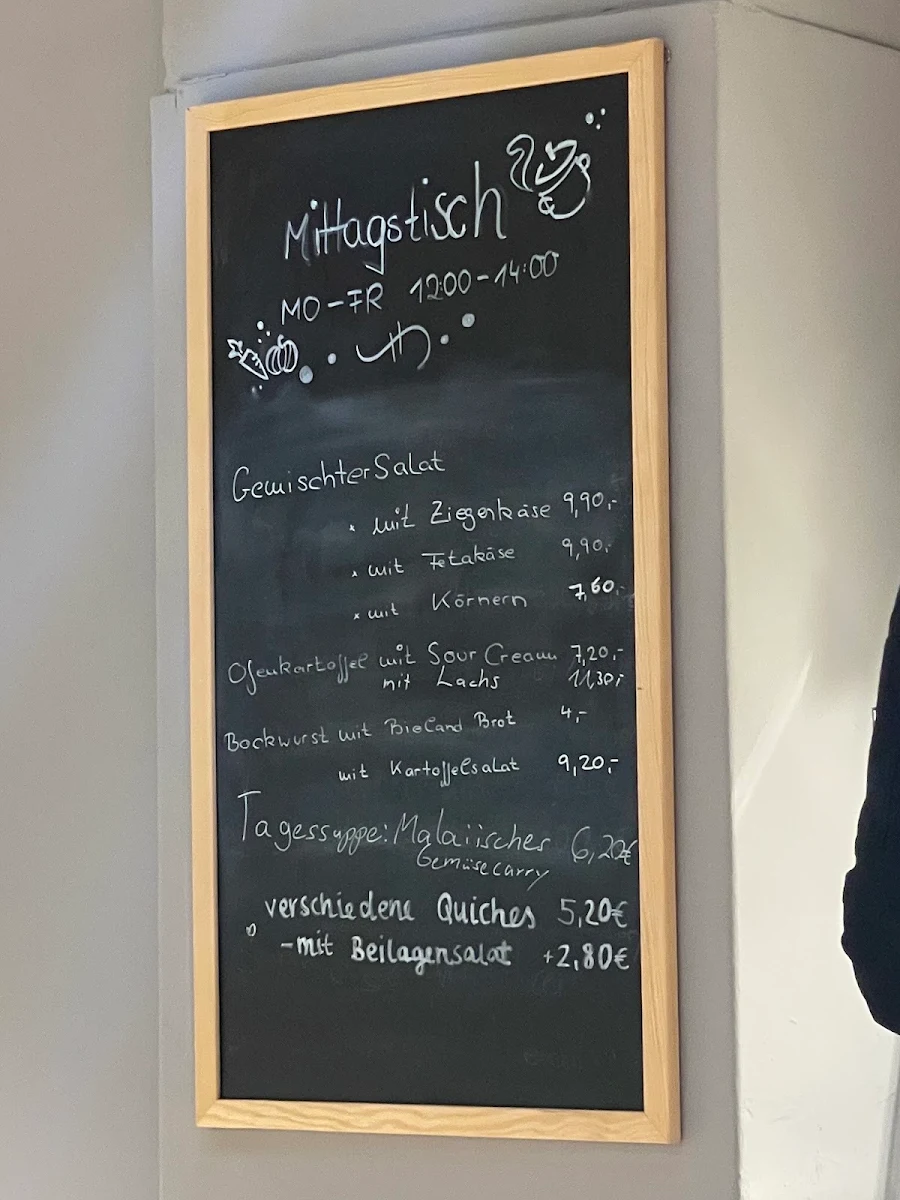 Mittagstisch
MO-FR 12:00-14:00
Gemischter Salat
x mit Ziegenkäse 9,90,-
x mit Fetakäse 9,90,-
x mit Körnern 7,60,-
Ofenkartoffel mit Sour Cream 7,20,-
mit Lachs 11,30,-
Bockwurst mit Bioland Brot 4,-
mit Kartoffelsalat 9,20,-
Tagessuppe: Malaiischer 6,20€
Gemüsecarry
verschiedene Quiches 5,20€
-mit Beilagensalat +2,80€